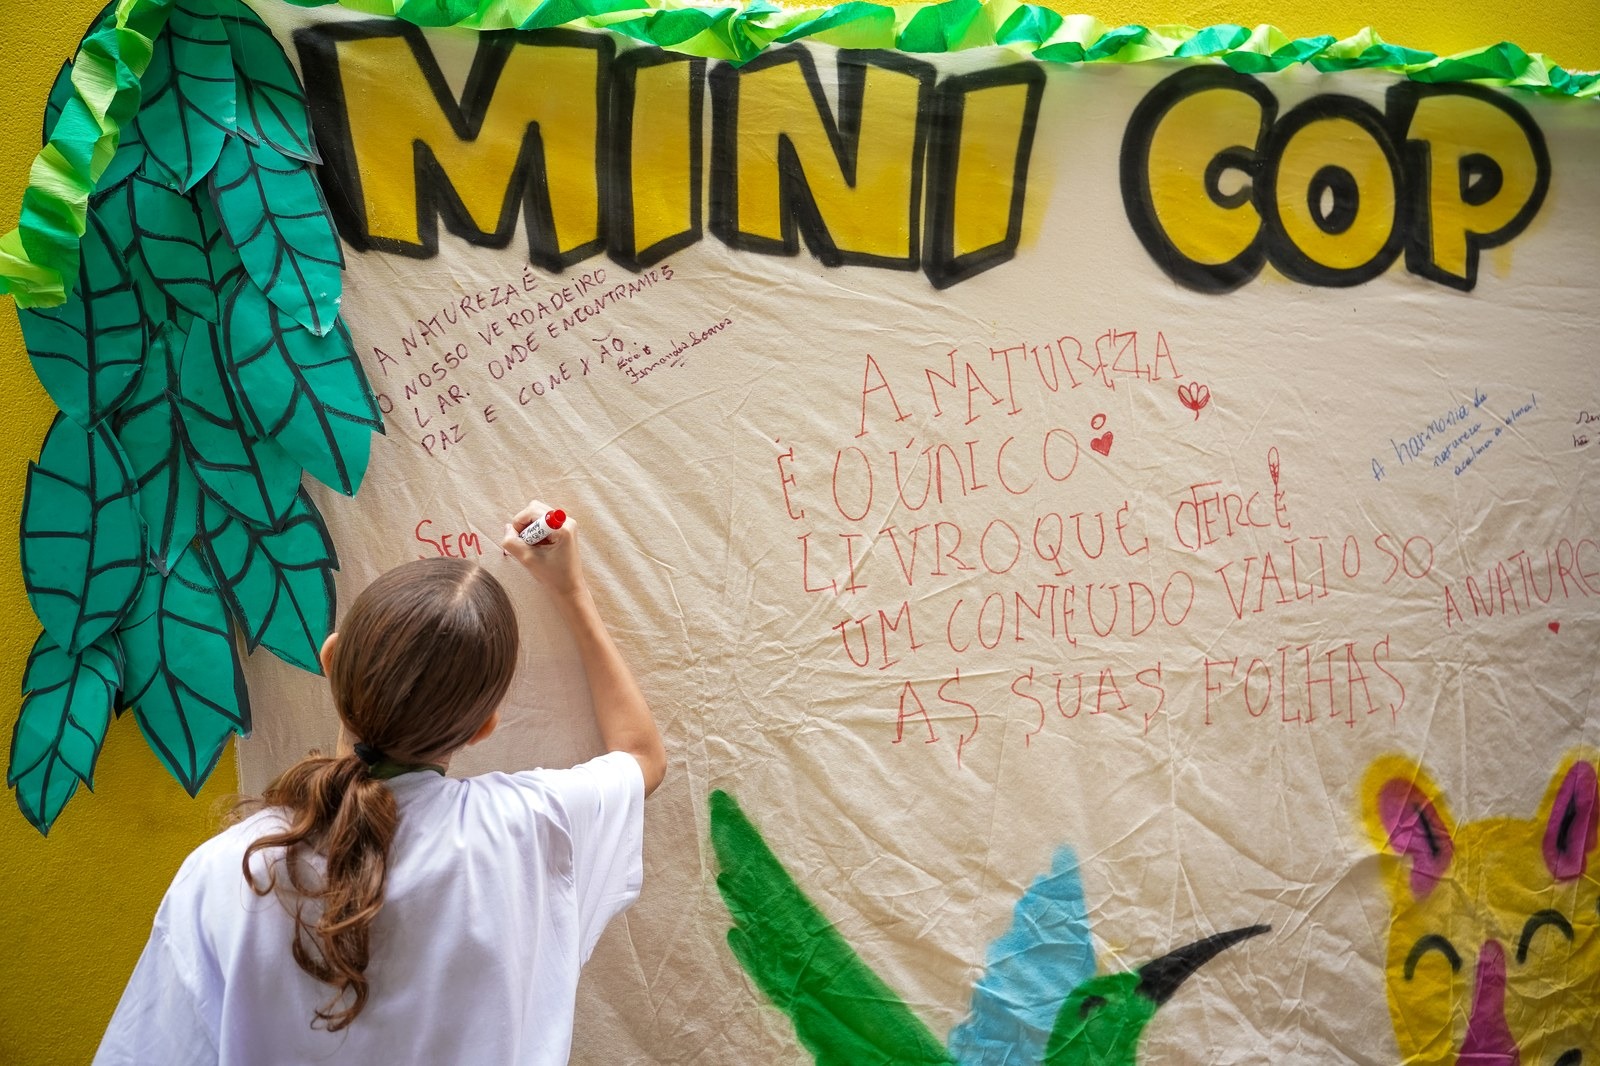 MINI COP
A NATUREZA É
O NOSSO VERDADEIRO
LAR. ONDE ENCONTRAMOS
PAZ E CONEXÃO
Fernandes Soares
SEM
A NATUREZA
É O ÚNICO
LIVRO QUE OFERCE
UM CONTEÚDO VALIOSO
AS SUAS FOLHAS
A harmonia da
natureza
acalma a alma!
A NATURE